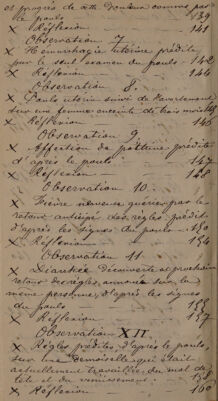 et progrès de cette douleur connus par
le pouls 139
x Réflexion 141
Observation 7.
x Hémorrhagie utérine prédite
sur le seul examen du pouls 142
x Réflexion 144
Observation 8.
x Pouls utérin suivi de l'avortement
sur une femme enceinte de trois mois
x Réflexion 146
Observation 9.
x Affection de poitrine prédite
d'après le pouls 147
x Réflexion 148
Observation 10.
x Fièvre nerveuse guérie par le
retour des règles prédit
d'après les signes du pouls 150
x Réflexion 154
Observation 11.
x Diarrhée découverte et prochain
retour des règles, annoncé sur la
même personne, d'après les signes
du pouls
x Réflexion 157
Observation XII
x Règles prédites d'après le pouls,
sur une demoiselle qui était
actuellement travaillée du mal de
tête et du vomissement 158
x Réflexion 160